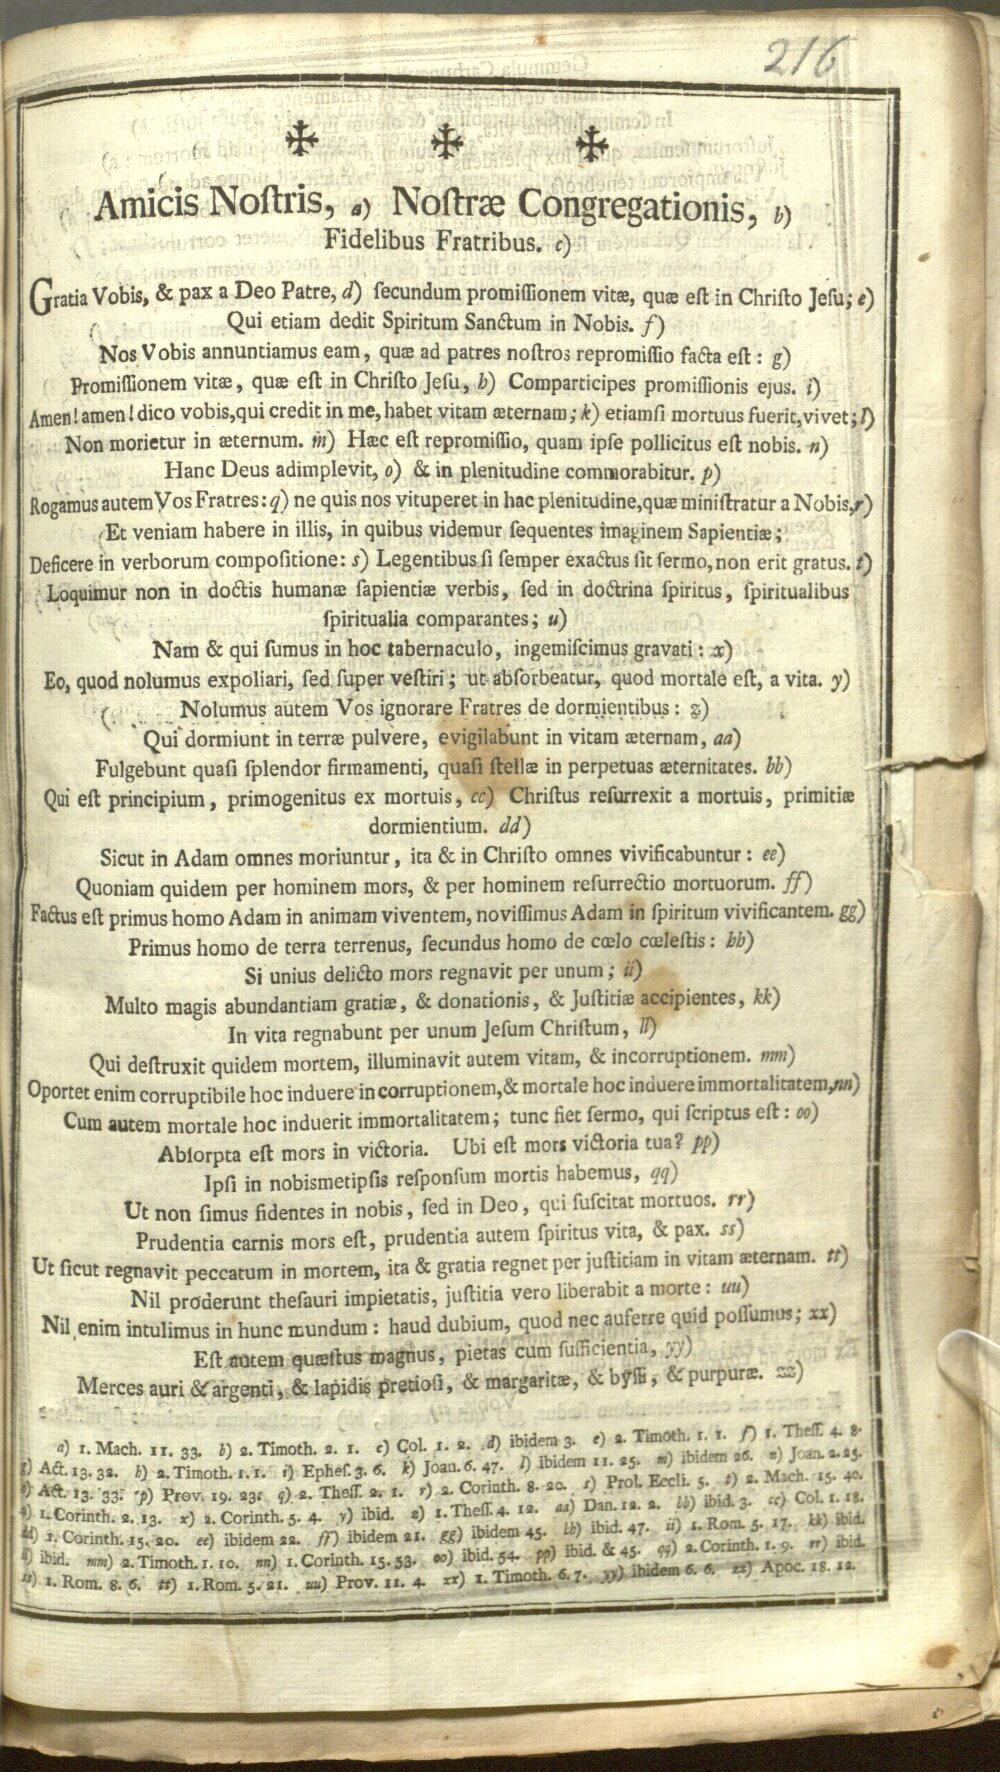 216
✠ ✠ ✠
Amicis Noſtris, a) Noſtræ Congregationis, b)
Fidelibus Fratribus. c)
Gratia Vobis, & pax a Deo Patre, d) ſecundum promiſſionem vitæ, quæ eſt in Chriſto Jeſu; e)
Qui etiam dedit Spiritum Sanctum in Nobis. f)
Nos Vobis annuntiamus eam, quæ ad patres noſtros repromiſſio facta eſt: g)
Promiſſionem vitæ, quæ eſt in Chriſto Jeſu, h) Comparticipes promiſſionis ejus. i)
Amen! amen! dico vobis, qui credit in me, habet vitam æternam; k) etiamſi mortuus fuerit, vivet; l)
Non morietur in æternum. m) Hæc eſt repromiſſio, quam ipſe pollicitus eſt nobis. n)
Hanc Deus adimplevit, o) & in plenitudine commorabitur. p)
Rogamus autem Vos Fratres: q) ne quis nos vituperet in hac plenitudine, quæ miniſtratur a Nobis, r)
Et veniam habere in illis, in quibus videmur ſequentes imaginem Sapientiæ;
Deficere in verborum compoſitione: s) Legentibus ſi ſemper exactus ſit ſermo, non erit gratus. t)
Loquimur non in doctis humanæ ſapientiæ verbis, ſed in doctrina ſpiritus, ſpiritualibus
ſpiritualia comparantes; u)
Nam & qui ſumus in hoc tabernaculo, ingemiſcimus gravati: x)
Eo, quod nolumus expoliari, ſed ſuper veſtiri; ut abſorbeatur, quod mortale eſt, a vita. y)
Nolumus autem Vos ignorare Fratres de dormientibus: z)
Qui dormiunt in terræ pulvere, evigilabunt in vitam æternam, aa)
Fulgebunt quaſi ſplendor firmamenti, quaſi ſtellæ in perpetuas æternitates. bb)
Qui eſt principium, primogenitus ex mortuis, cc) Chriſtus reſurrexit a mortuis, primitiæ
dormientium. dd)
Sicut in Adam omnes moriuntur, ita & in Chriſto omnes vivificabuntur: ee)
Quoniam quidem per hominem mors, & per hominem reſurrectio mortuorum. ff)
Factus eſt primus homo Adam in animam viventem, noviſſimus Adam in ſpiritum vivificantem. gg)
Primus homo de terra terrenus, ſecundus homo de cœlo cœleſtis: hh)
Si unius delicto mors regnavit per unum; ii)
Multo magis abundantiam gratiæ, & donationis, & Juſtitiæ accipientes, kk)
In vita regnabunt per unum Jeſum Chriſtum, ll)
Qui deſtruxit quidem mortem, illuminavit autem vitam, & incorruptionem. mm)
Oportet enim corruptibile hoc induere incorruptionem, & mortale hoc induere immortalitatem, nn)
Cum autem mortale hoc induerit immortalitatem; tunc fiet ſermo, qui ſcriptus eſt: oo)
Abſorpta eſt mors in victoria. Ubi eſt mors victoria tua? pp)
Ipſi in nobismetipſis reſponſum mortis habemus, qq)
Ut non ſimus fidentes in nobis, ſed in Deo, qui ſuſcitat mortuos. rr)
Prudentia carnis mors eſt, prudentia autem ſpiritus vita, & pax. ss)
Ut ſicut regnavit peccatum in mortem, ita & gratia regnet per juſtitiam in vitam æternam. tt)
Nil proderunt theſauri impietatis, juſtitia vero liberabit a morte: uu)
Nil enim intulimus in hunc mundum: haud dubium, quod nec auferre quid poſſumus; xx)
Eſt autem quæſtus magnus, pietas cum ſufficientia, yy)
Merces auri & argenti, & lapidis pretioſi, & margaritæ, & byſſi, & purpuræ. zz)
a) 1. Mach. 11. 33. b) 2. Timoth. 2. 1. c) Col. 1. 2. d) ibidem 3. e) 2. Timoth. 1. 1. f) 1. Theſſ. 4. 8.
g) Act. 13. 32. h) 2. Timoth. 1. 1. i) Epheſ. 3. 6. k) Joan. 6. 47. l) ibidem 11. 25. m) ibidem 26. n) Joan. 2. 25.
o) Act. 13. 33. p) Prov. 19. 23. q) 2. Theſſ. 2. 1. r) 2. Corinth. 8. 20. s) Prol. Eccli. 5. t) 2. Mach. 15. 40.
u) 1. Corinth. 2. 13. x) 2. Corinth. 5. 4. y) ibid. z) 1. Theſſ. 4. 12. aa) Dan. 12. 2. bb) ibid. 3. cc) Col. 1. 18.
dd) 1. Corinth. 15. 20. ee) ibidem 22. ff) ibidem 21. gg) ibidem 45. hh) ibid. 47. ii) 1. Rom. 5. 17. kk) ibid.
ll) ibid. mm) 2. Timoth. 1. 10. nn) 1. Corinth. 15. 53. oo) ibid. 54. pp) ibid. & 45. qq) 2. Corinth. 1. 9. rr) ibid.
ss) 1. Rom. 8. 6. tt) 1. Rom. 5. 21. uu) Prov. 11. 4. xx) 1. Timoth. 6. 7. yy) ibidem 6. 6. zz) Apoc. 18. 12.